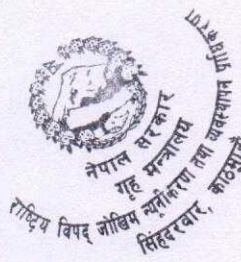 नेपाल सरकार
गृह मन्त्रालय
राष्ट्रिय विपद् जोखिम न्यूनीकरण तथा व्यवस्थापन प्राधिकरण
सिंहदरवार, काठमाडौँ